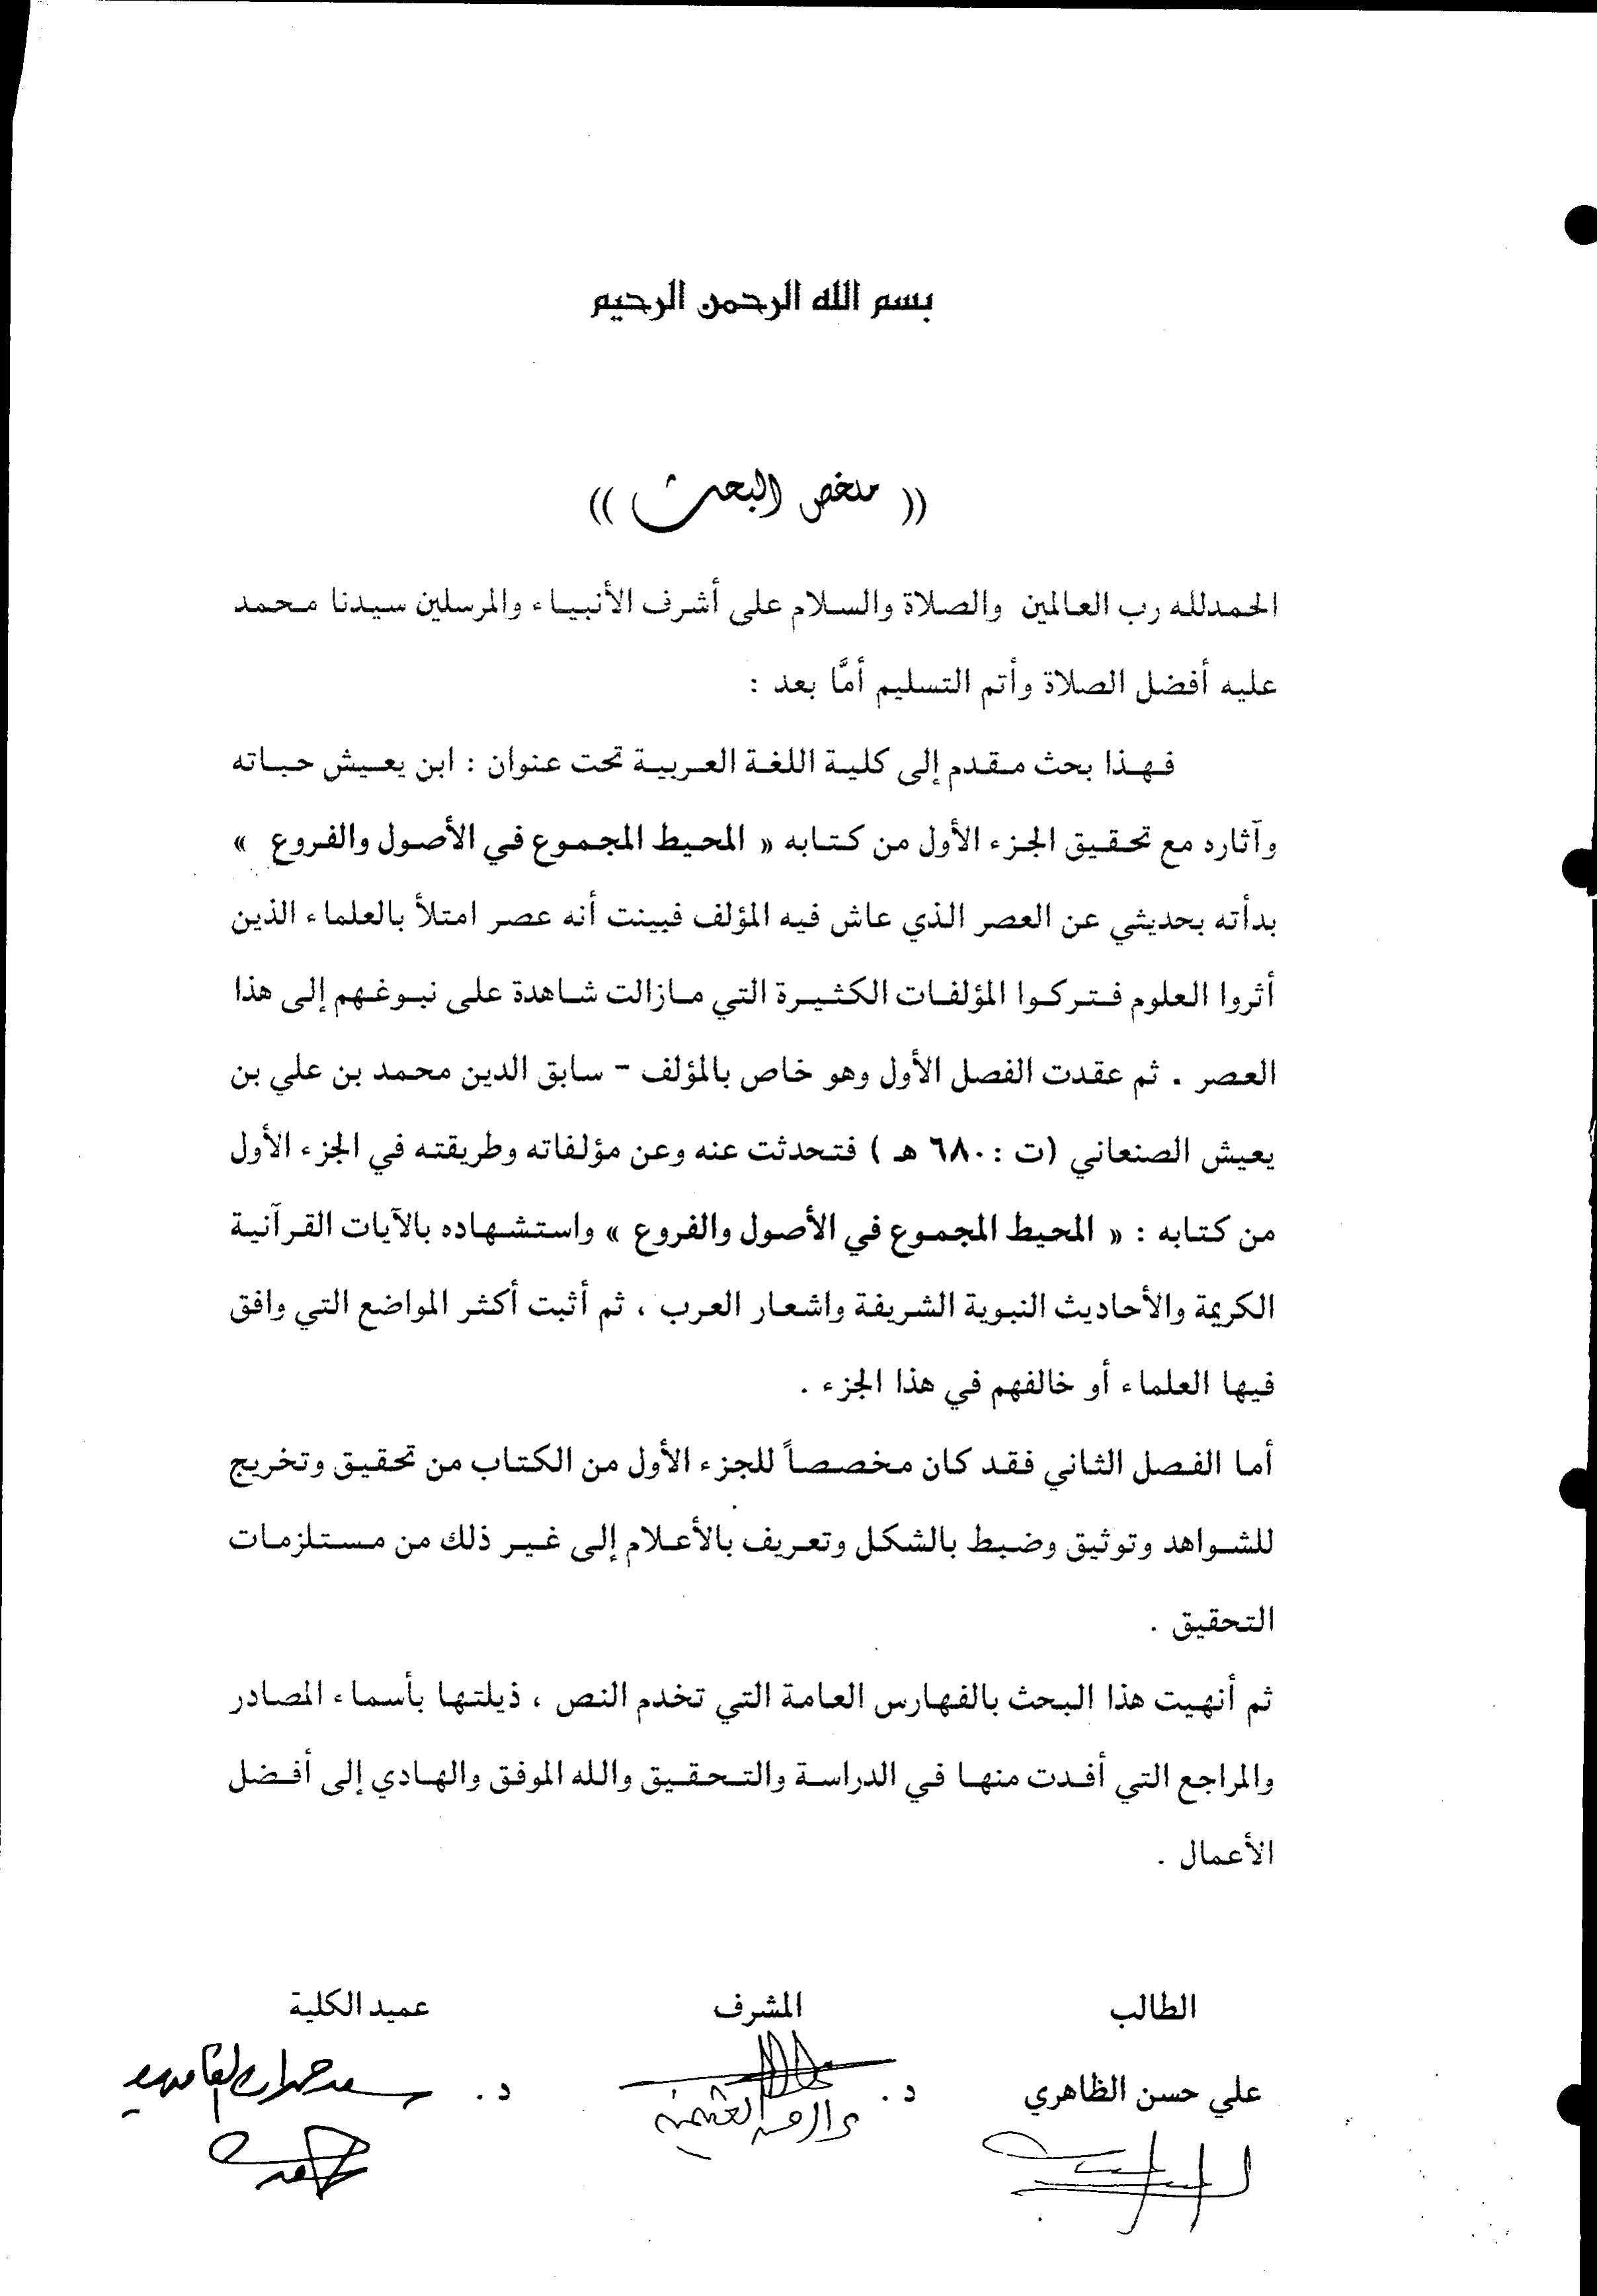 بسم الله الرحمن الرحيم
(( ملخص البحث ))
الحمدلله رب العالمين والصلاة والسلام على أشرف الأنبياء والمرسلين سيدنا محمد
عليه أفضل الصلاة وأتم التسليم أمَّا بعد :
فهذا بحث مقدم إلى كلية اللغة العربية تحت عنوان : ابن يعيش حياته
وآثاره مع تحقيق الجزء الأول من كتابه « المحيط المجموع في الأصول والفروع »
بدأته بحديثي عن العصر الذي عاش فيه المؤلف فبينت أنه عصر امتلأ بالعلماء الذين
أثروا العلوم فتركوا المؤلفات الكثيرة التي مازالت شاهدة على نبوغهم إلى هذا
العصر . ثم عقدت الفصل الأول وهو خاص بالمؤلف - سابق الدين محمد بن علي بن
يعيش الصنعاني (ت : ٦٨٠ هـ ) فتحدثت عنه وعن مؤلفاته وطريقته في الجزء الأول
من كتابه : « المحيط المجموع في الأصول والفروع » واستشهاده بالآيات القرآنية
الكريمة والأحاديث النبوية الشريفة واشعار العرب ، ثم أثبت أكثر المواضع التي وافق
فيها العلماء أو خالفهم في هذا الجزء .
أما الفصل الثاني فقد كان مخصصاً للجزء الأول من الكتاب من تحقيق وتخريج
للشواهد وتوثيق وضبط بالشكل وتعريف بالأعلام إلى غير ذلك من مستلزمات
التحقيق .
ثم أنهيت هذا البحث بالفهارس العامة التي تخدم النص ، ذيلتها بأسماء المصادر
والمراجع التي أفدت منها في الدراسة والتحقيق والله الموفق والهادي إلى أفضل
الأعمال .
الطالب المشرف عميد الكلية
علي حسن الظاهري د . د .